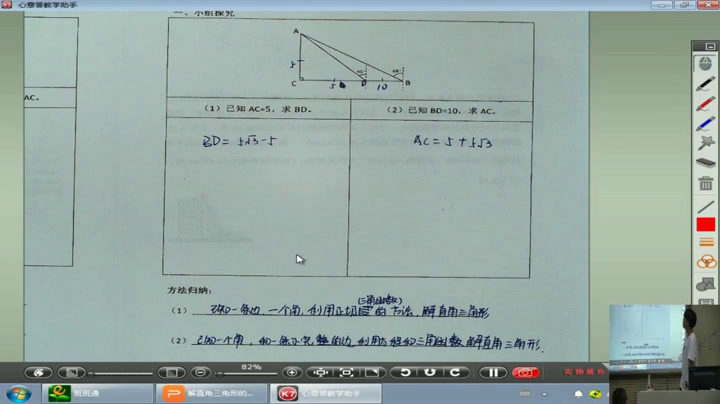 心意答教学助手
一、小组探究
A
C
D
B
5
10
AC。
(1)已知AC=5，求BD。
(2)已知BD=10，求AC。
BD=5√3-5
AC=5+5√3
方法归纳：
(三角函数)
(1) 已知一条边，一个角，利用正切的方法，解直角三角形
(2) 已知一个角，和一条不完整的边，利用方程和三角函数解直角三角形.
82%
实物展台
班班通
解直角三角形的...
心意答教学助手